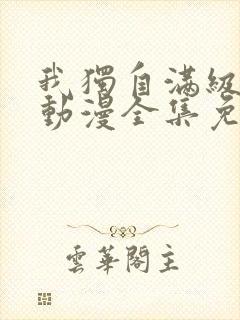 我獨自滿級
動漫全集免
雲華閣主